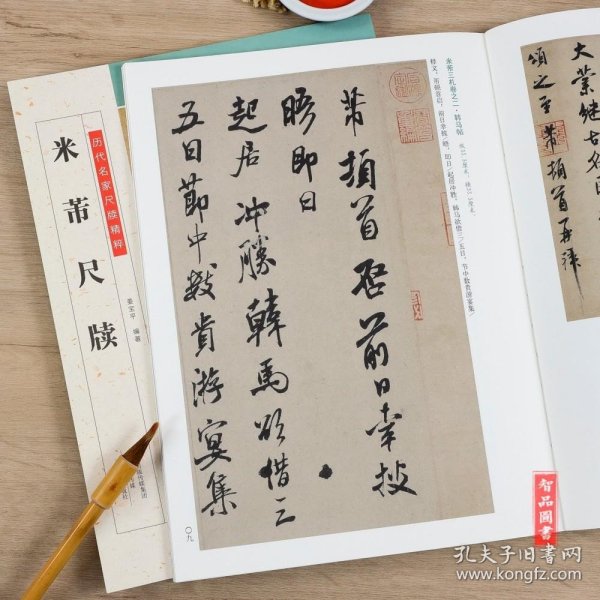 历代名家尺牍精粹
米芾尺牍
姜宝平 编著
米芾三札卷之二·韩马帖
释文：芾顿首启，前日幸披/晤，即日/起居冲胜，韩马欲借三/五日，节中数贵游宴集/
芾頓首啓前日幸披
晤即日
起居冲勝韓馬欲借三
五日節中数貴游宴集
〇九
大業継古名臣
頌之至芾頓首再拜
智品圖書
孔夫子旧书网
www.kongfz.com